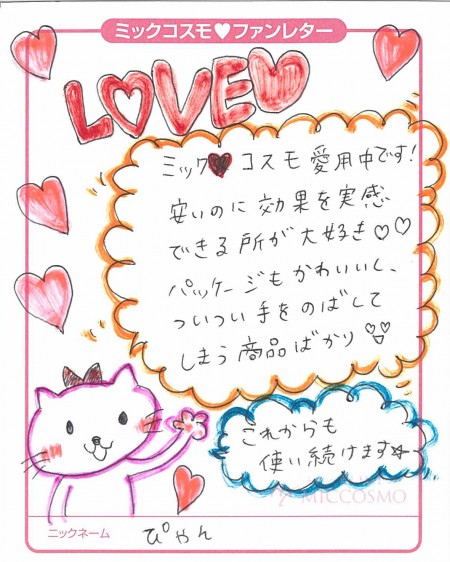 ミックコスモ♥ファンレター
LOVE♥
ミック♥コスモ愛用中です!
安いのに効果を実感
できる所が大好き♡♡
パッケージもかわいいし、
ついつい手をのばして
しまう商品ばかり♡
これからも
使い続けます☆
MICCOSMO
ニックネーム ぴゃん